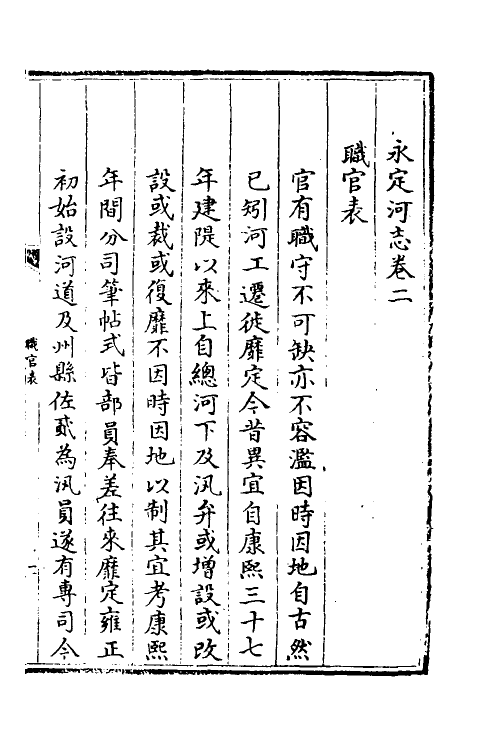 永定河志卷二
職官表
官有職守不可缺亦不容濫因時因地自古然
已矧河工遷徙靡定今昔異宜自康熙三十七
年建隄以來上自總河下及汛弁或增設或改
設或裁或復靡不因時因地以制其宜考康熙
年間分司筆帖式皆部員奉差往來靡定雍正
初始設河道及州縣佐貳為汛員遂有專司今
職官表
一